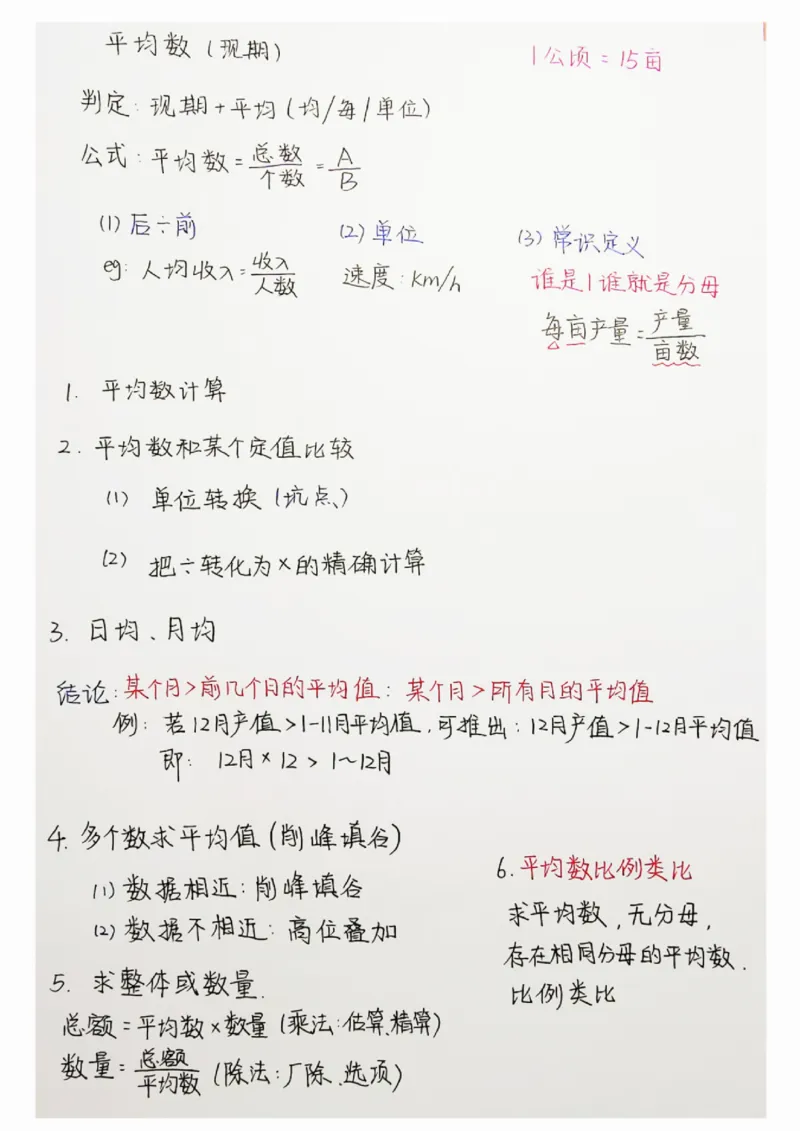 平均数（现期）
1公顷 = 15亩
判定：现期+平均（均/每/单位）
公式：平均数 = 总数/个数 = A/B
(1) 后÷前
eg: 人均收入 = 收入/人数
(2) 单位
速度：km/h
(3) 常识定义
谁是1谁就是分母
每亩产量 = 产量/亩数
1. 平均数计算
2. 平均数和某个定值比较
(1) 单位转换（坑点、）
(2) 把÷转化为×的精确计算
3. 日均、月均
结论：某个月>前几个月的平均值：某个月>所有月的平均值
例：若12月产值>1-11月平均值，可推出：12月产值>1-12月平均值
即：12月×12 > 1~12月
4. 多个数求平均值（削峰填谷）
(1) 数据相近：削峰填谷
(2) 数据不相近：高位叠加
5. 求整体或数量.
总额=平均数×数量（乘法：估算、精算）
数量 = 总额/平均数（除法：厂除、选项）
6. 平均数比例类比
求平均数，无分母，
存在相同分母的平均数.
比例类比